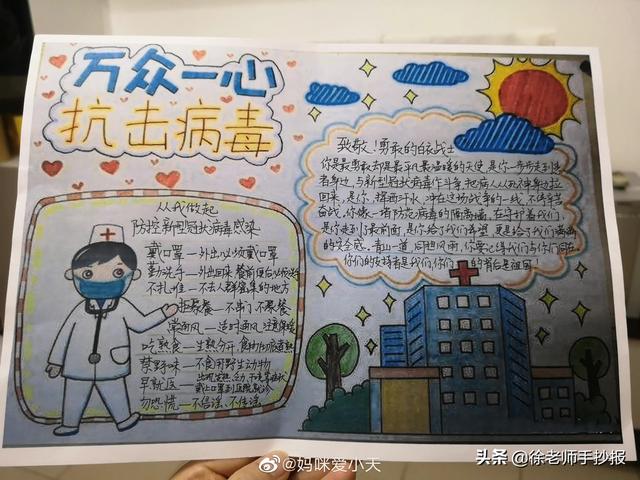 万众一心
抗击病毒
从我做起
防控新型冠状病毒感染
戴口罩－外出必须戴口罩
勤洗手－外出回来 餐前便后必须洗
不扎堆－不去人群密集的地方
拒聚餐－不串门 不聚餐
常通风－适时通风 注意保暖
吃熟食－生熟分开
禁野味－不食用野生动物
早就医－出现发热
戴上口罩到医院就诊
勿恐慌－不信谣、不传谣
致敬！勇敢的白衣战士
你是最勇敢却是最平凡最温暖的天使，是你一步步走到患
者身边，与新型冠状病毒作斗争，把病人从死神身边拉
回来，是你，挥洒汗水，冲在这场战争的一线，不停辛苦
奋战，你像一堵防范病毒的隔离墙，在守护着我们，
是你走到了最前面，是你给了我们希望，更是给了我们满满
的安全感。青山一道，同担风雨，你要记得我们与你们同在，
你们的支持者是我们，你们的背后是祖国！
@妈咪爱小天
头条 @徐老师手抄报